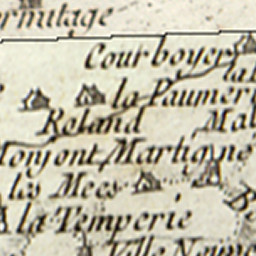 ermitage
Courboyer
la Paumeri
Roland Mal
Monjont Martigne
les Mees
la Temperie
Ville Neuve